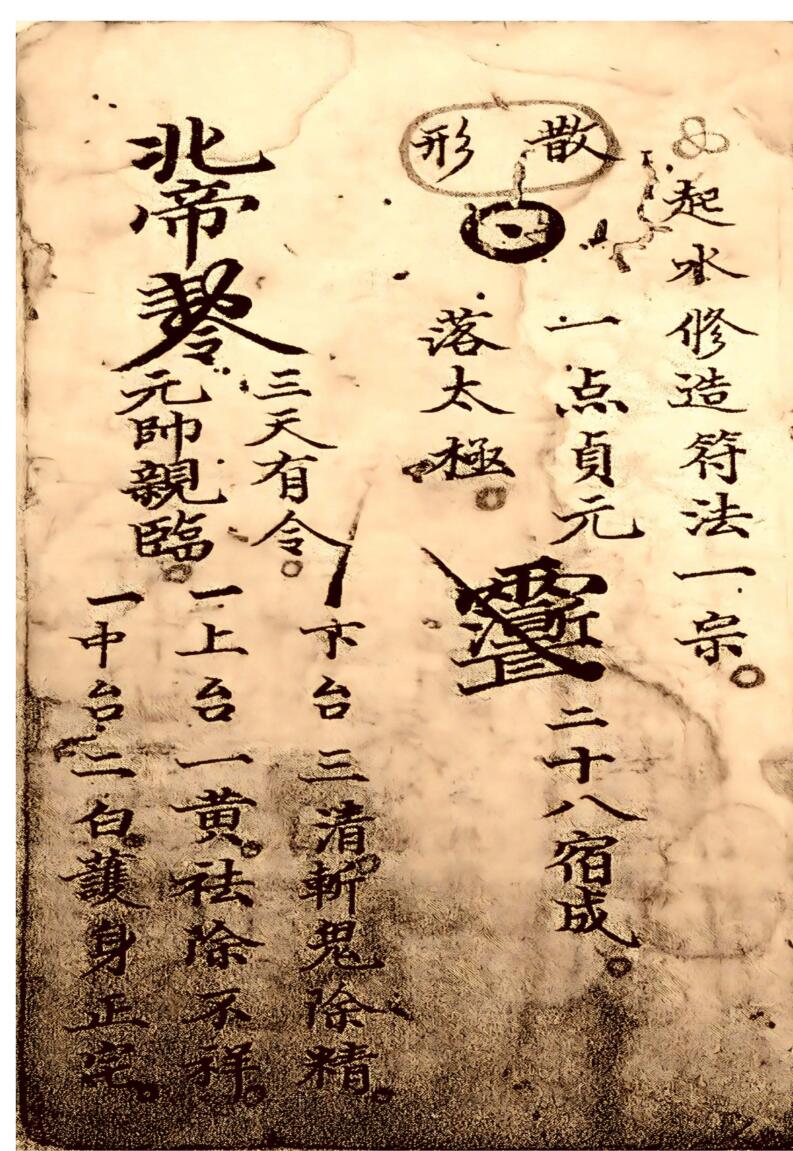 起水修造符法一宗。
散形
一点貞元
落太極。
二十八宿成。
北帝
三天有令。
元帥親臨。
一上台一黄。祛除不祥。
一中台二白。護身正宅。
下台三清。斬鬼除精。